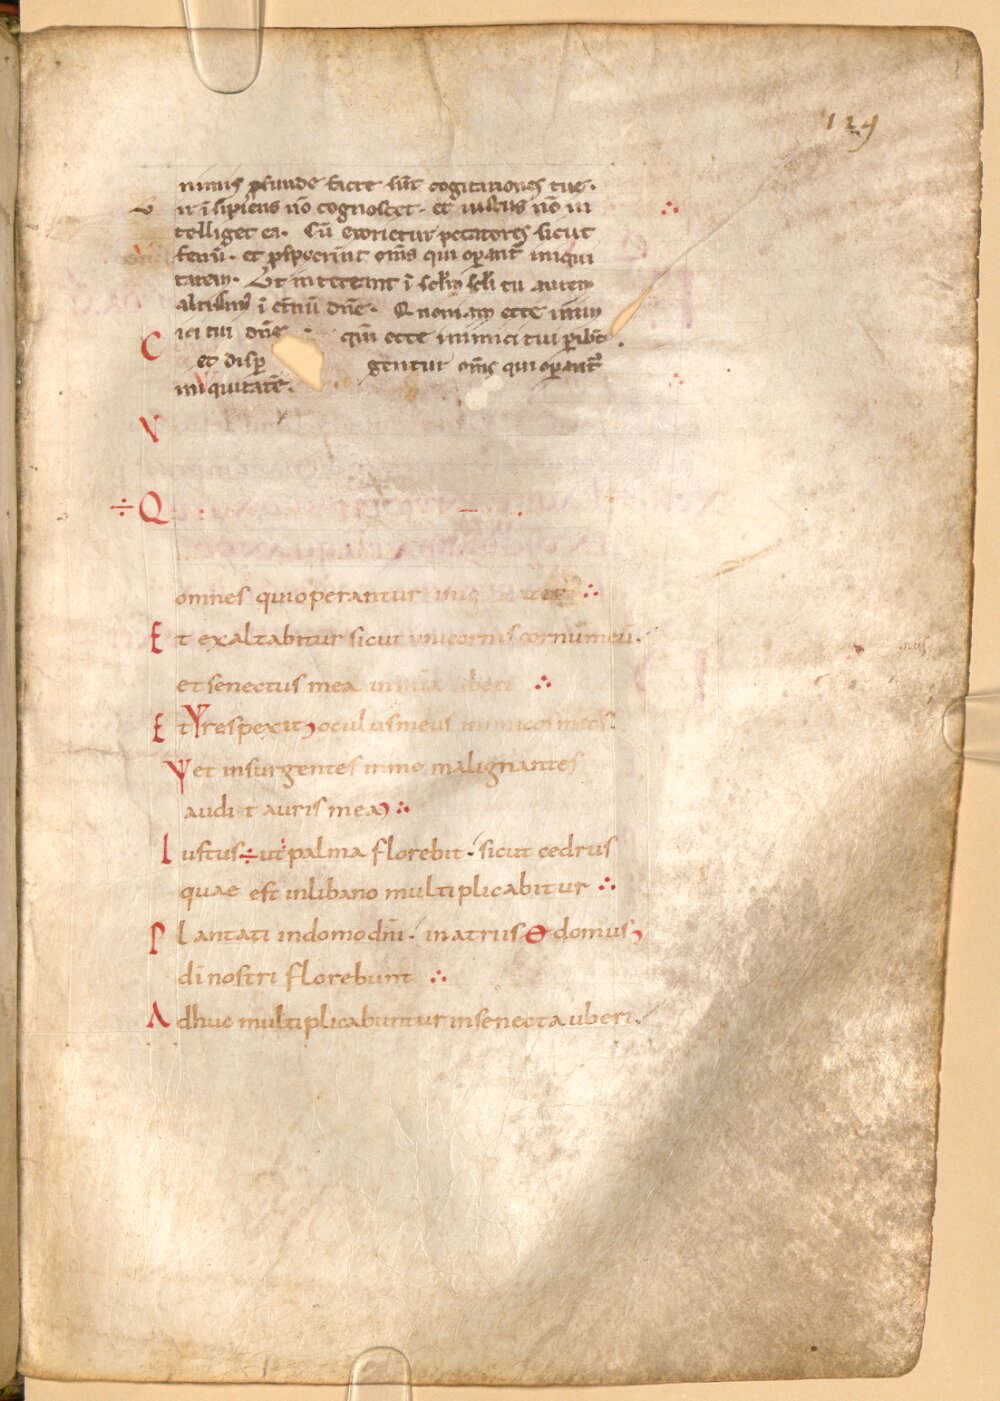 129
nimis ꝓfunde facte sūt cogitationes tue.
ir īsipiens nō cognoscet. et iustus nō in
telliget ea. Cū exorietur peccatores sicut
fenū. et ꝓspexerint om̄s qui oꝑant̄ iniqui
tatem. Ut intereant ī sclm̄ scli tu autem
altissim' ī etnū dn̄e. Quoniam ecce inim
ici tui dn̄e qm̄ ecce inimici tui ꝑibt̄.
C
et disp gentur om̄s qui oꝑant̄
iniquitatē.
V
÷ Q
omnes quioperantur
E t exaltabitur sicut unicornis cornumeū.
et senectus mea uberi
E t respexit oculusmeus inimicosmeos.
et insurgentes inme malignantes
audi t auris mea
I ustus÷ut palma florebit. sicut cedrus
quae est inlibano multiplicabitur
P lantati indomodn̄i. inatriis domus
dī nostri florebunt
A dhuc multiplicabuntur insenecta uberi.